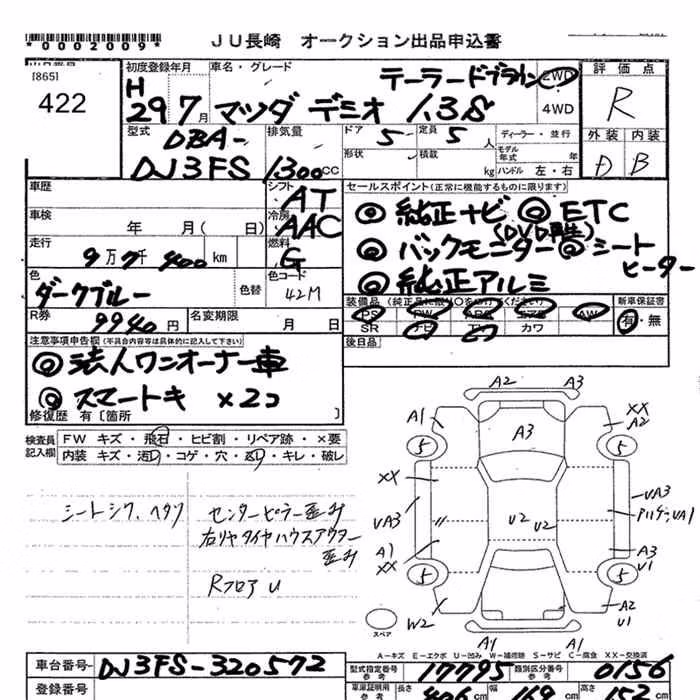 *0002009*
JU長崎 オークション出品申込書
出品番号
[865]
422
初度登録年月
H 29 7 月
車名・グレード
テーラードブラウン
マツダ デミオ 1.3S
2WD
4WD
評価点
R
外装 内装
D B
型式
DBA-
DJ3FS
排気量
1300 CC
ドア 5
定員 5 人
形状
積載 kg
ディーラー・並行
モデル年式 年
ハンドル 左・右
車歴
シフト AT
車検 年 月( 日)
冷房 AAC
走行 9万7千400 km
燃料 G
色
ダークブルー
色替
色コード
42M
R券 9940 円
名変期限 月 日
セールスポイント(正常に機能するものに限ります)
◎純正ナビ ◎ETC
(DVD再生)
◎バックモニター ◎シートヒーター
◎純正アルミ
装備品(純正品に限り○をつけてください)
PS PW ABS エアB AW
SR ナビ TV カワ
新車保証書
有・無
後日品
注意事項申告欄(不具合内容等は具体的に記入して下さい)
◎法人ワンオーナー車
◎スマートキ ×2コ
修復歴 有〔箇所 〕
検査員記入欄
FW キズ・飛石・ヒビ割・リペア跡・×要
内装 キズ・汚れ・コゲ・穴・スレ・キレ・破レ
シートシワ、ヘタリ
センターピラー歪み
右リヤタイヤハウスアウター
歪み
Rフロア U
A2 A3
A1 A3 XX A2
5 5
XX VA3
VA3 U2 U2
A1 A3
XX U1
5 5
W2 A2
U1
スペア
A1 A1
A-キズ E-エクボ U-凹み W-補修跡 S-サビ C-腐食 XX-交換済
車台番号 DJ3FS-320572
型式指定番号 参考 17795
類別区分番号 参考 0156
登録番号
車庫証明用 参考
長さ 406 cm
幅 169 cm
高さ